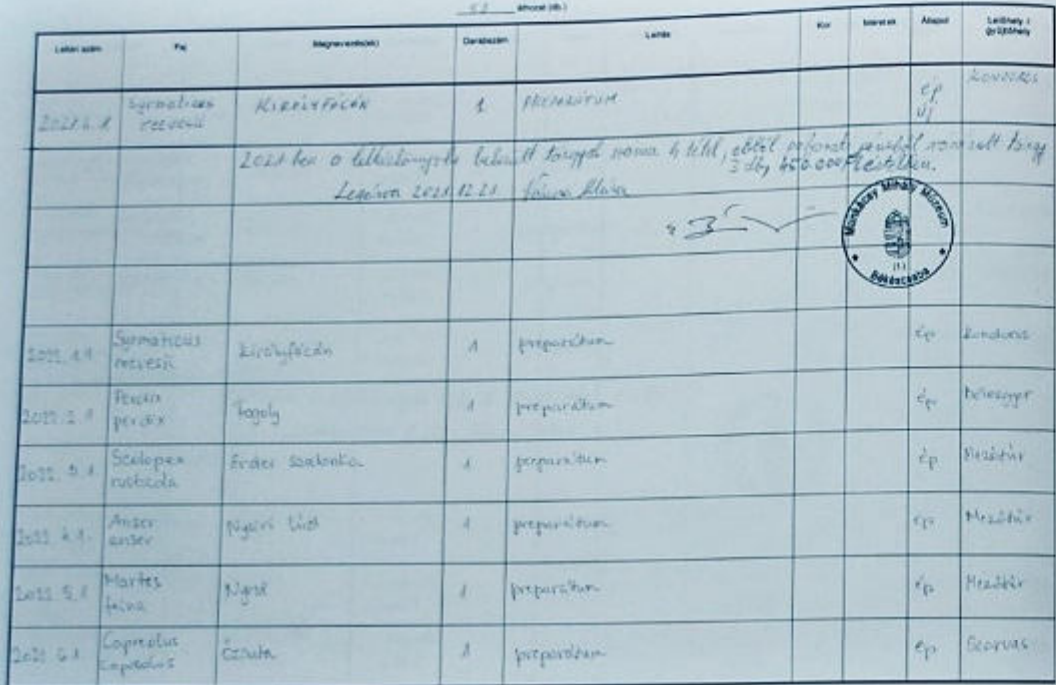 áthozat (db.)
Leltári szám Faj Megnevezés(ek) Darabszám Leírás Kor Méretek Állapot Lelőhely / gyűjtőhely
2021.4.1 Syrmaticus reevesii KIRÁLYFÁCÁN 1 PREPARÁTUM ép új KONDOROS
2021-ben a leltárkönyvbe bekerült tárgyak száma 4 tétel, ebből
3 db, 450.000 Ft értékben.
2021.12.21.
Munkácsy Mihály Múzeum
(1)
Békéscsaba
2022.1.1 Syrmaticus reevesii királyfácán 1 preparátum ép Kondoros
2022.2.1 Perdix perdix Fogoly 1 preparátum ép Bélmegyer
2022.3.1 Scolopax rusticola Erdei szalonka 1 preparátum ép Mezőtúr
2022.4.1. Anser anser Nyári lúd 1 preparátum ép Mezőtúr
2022.5.1 Martes foina Nyest 1 preparátum ép Mezőtúr
2022.6.1 Capreolus capreolus Őzsuta 1 preparátum ép Szarvas